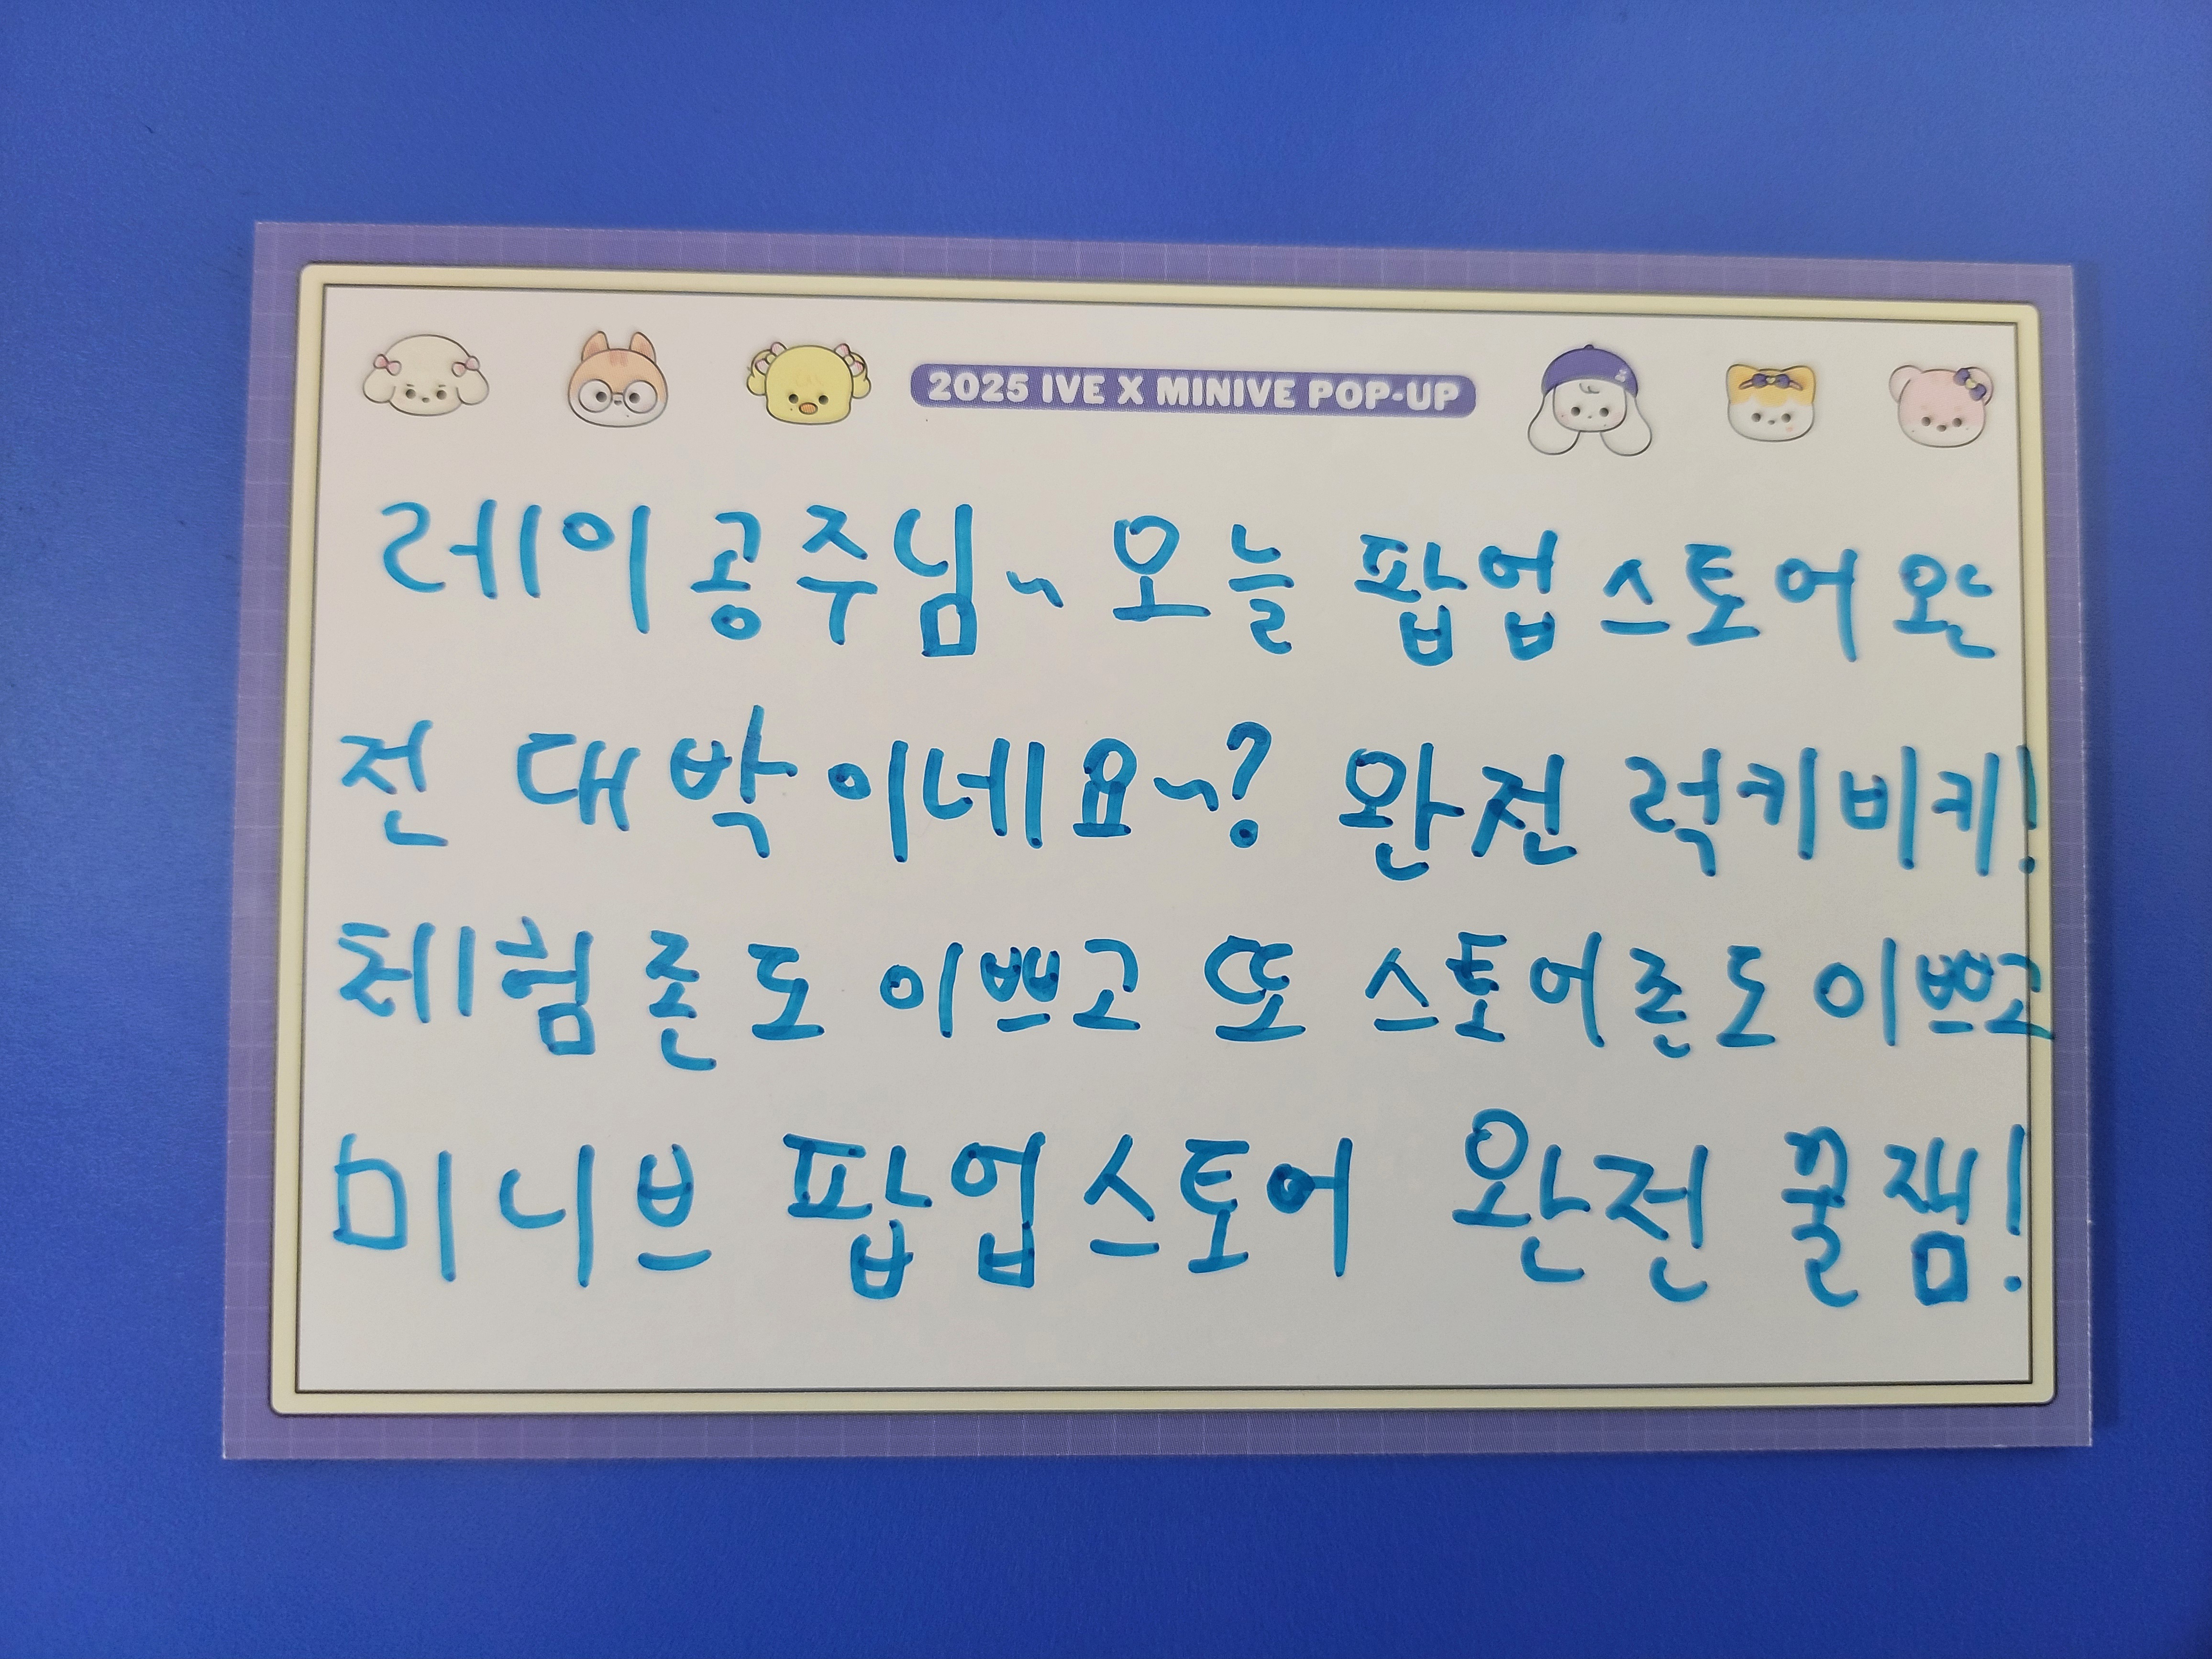 2025 IVE X MINIVE POP-UP
레이공주님~ 오늘 팝업스토어 완
전 대박이네요~? 완전 럭키비키!
체험존도 이쁘고 또 스토어존도 이쁘고
미니브 팝업스토어 완전 꿀잼!